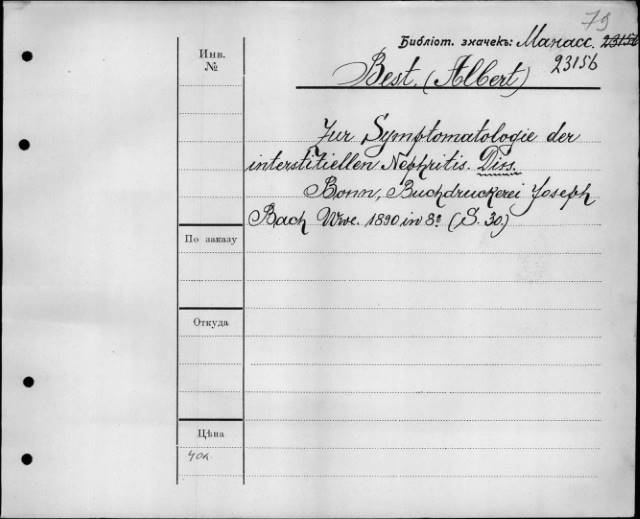 79
Библіот. значекъ: Манасс. 23156
23156
Инв.
№
Best. (Albert)
Zur Symptomatologie der
interstitiellen Nephritis. Diss.
Bonn, Buchdruckerei Joseph
Bach Wwe. 1890 in 8º (S. 30.)
По заказу
Откуда
Цѣна
40к.